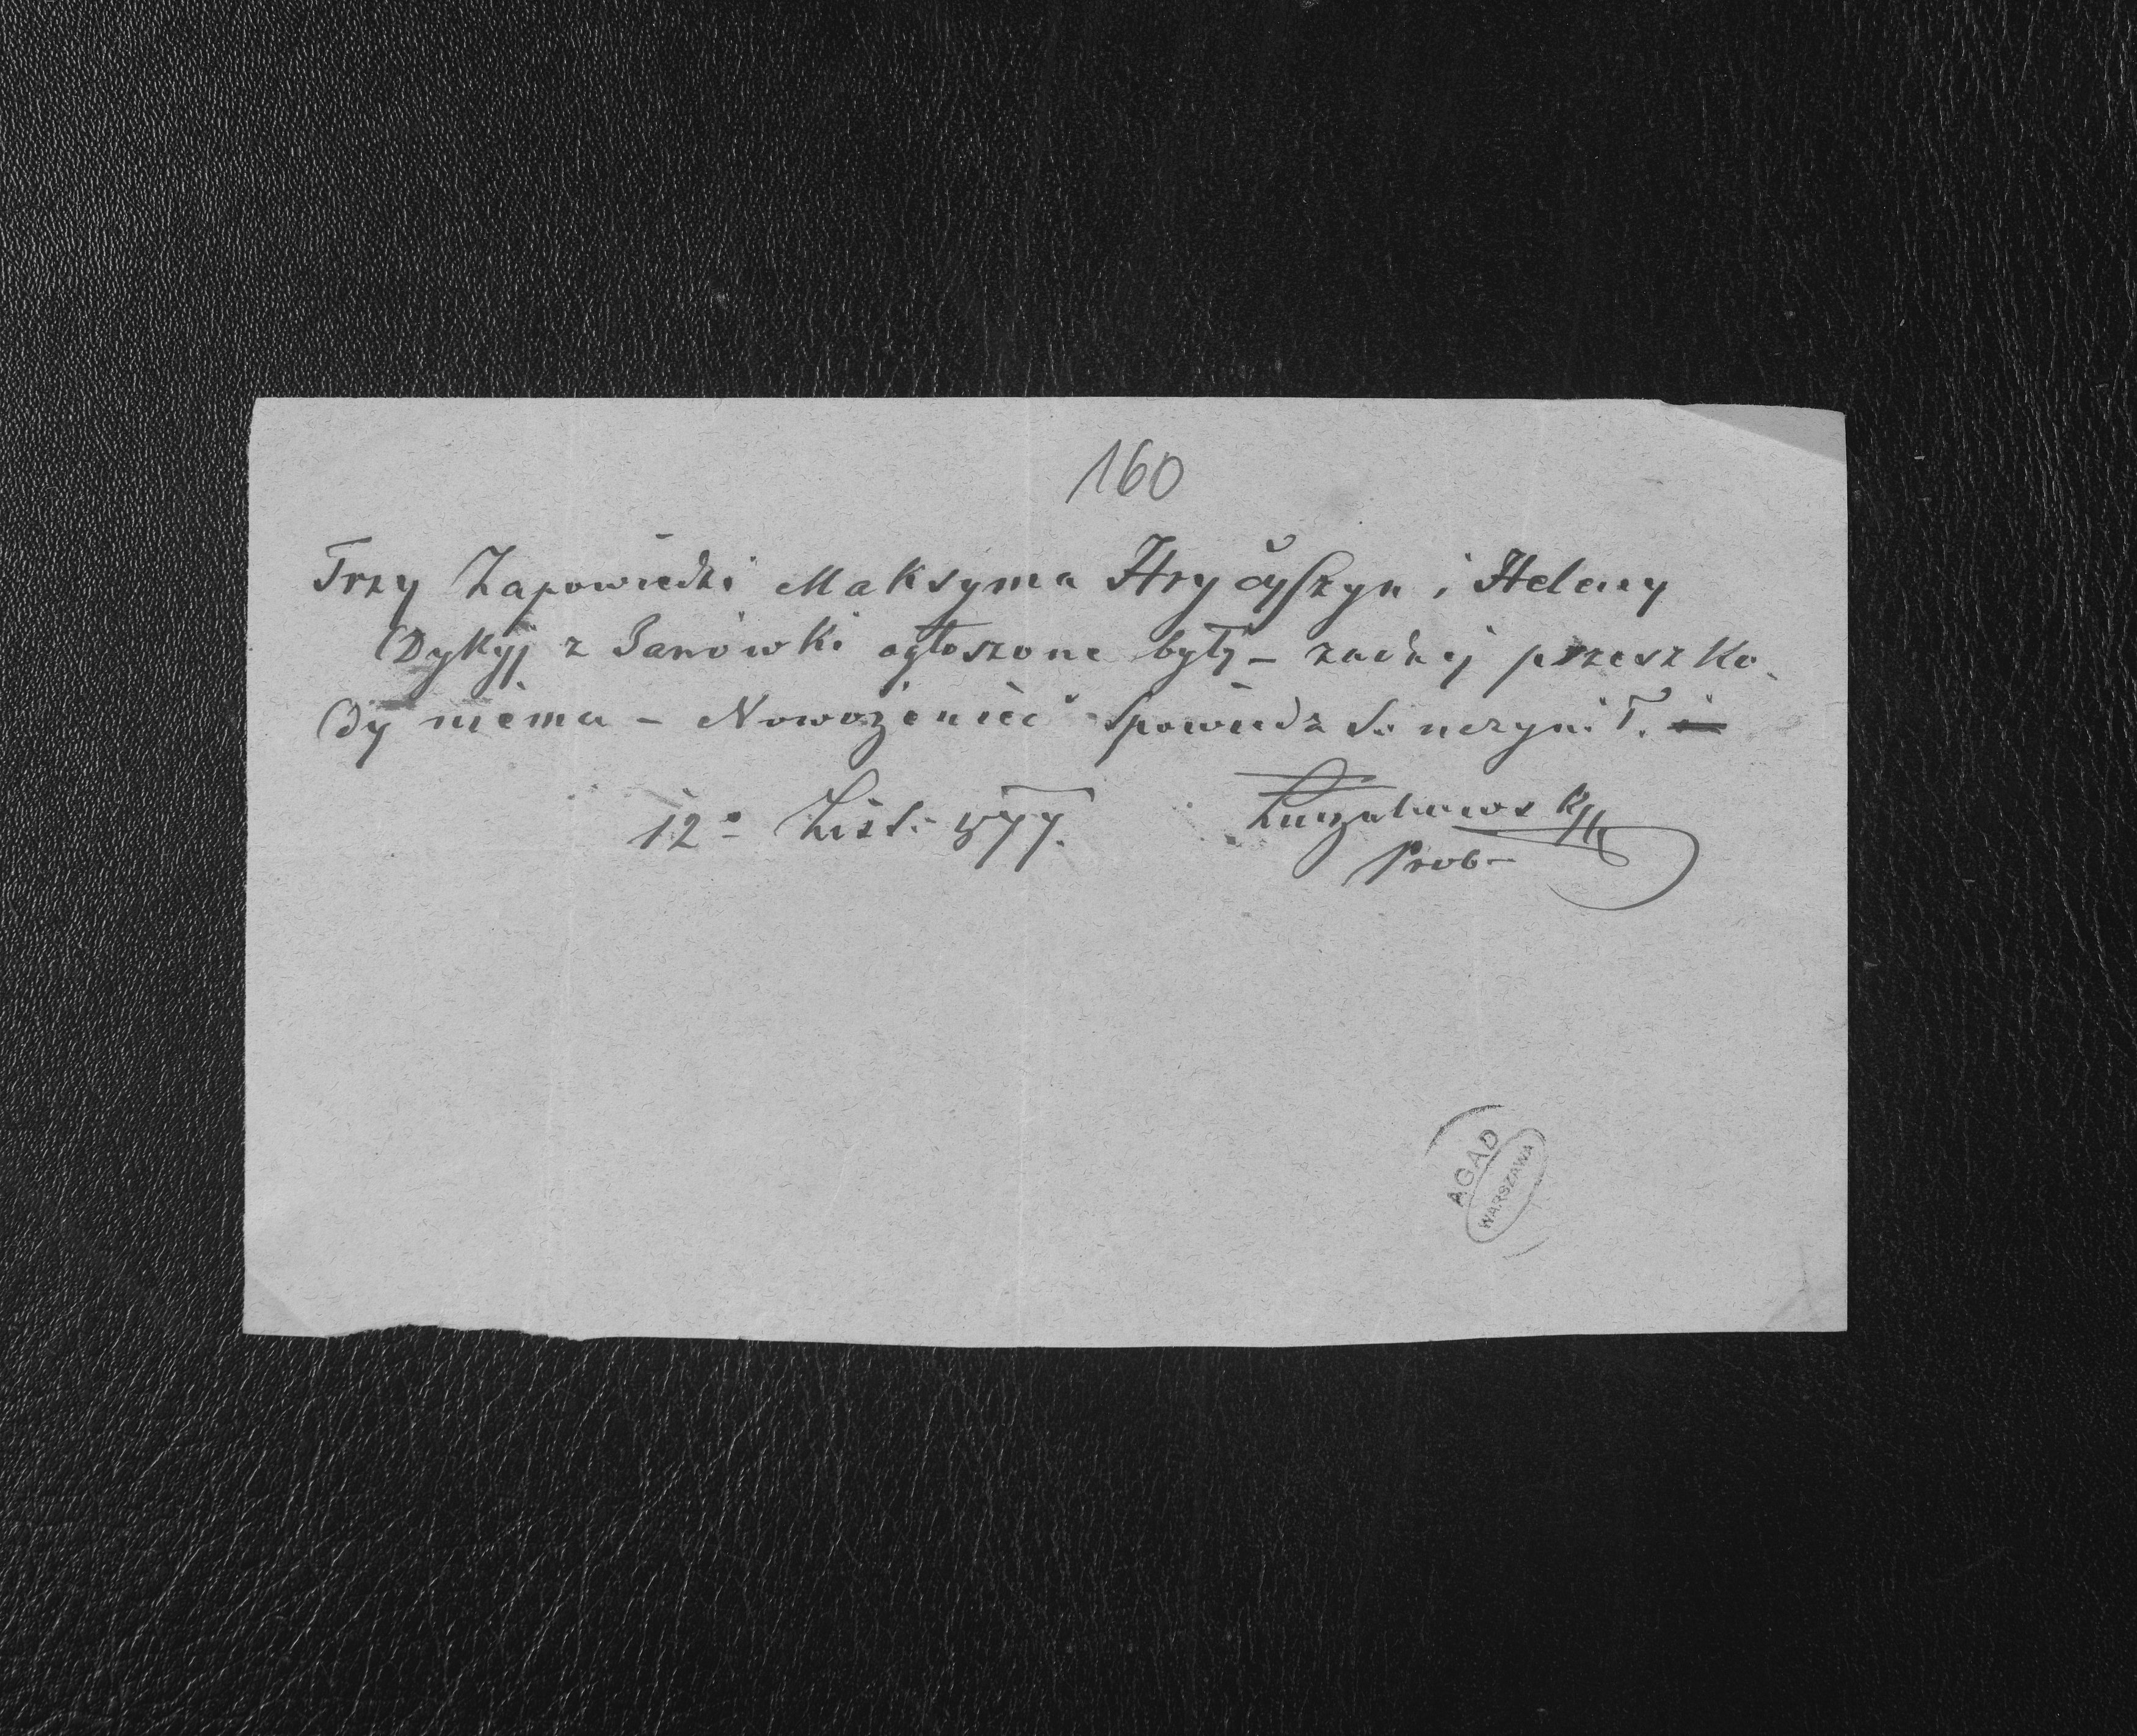 160
Trzy Zapowiedzi Maksyma Hrycyszyn i Heleny
Dykyj z Janówki ogłoszone były – żadnej przeszko-
dy niema – Nowożeniec Spowiedz S. uczynił.
12º List. 877.
Prob–
AGAD
WARSZAWA